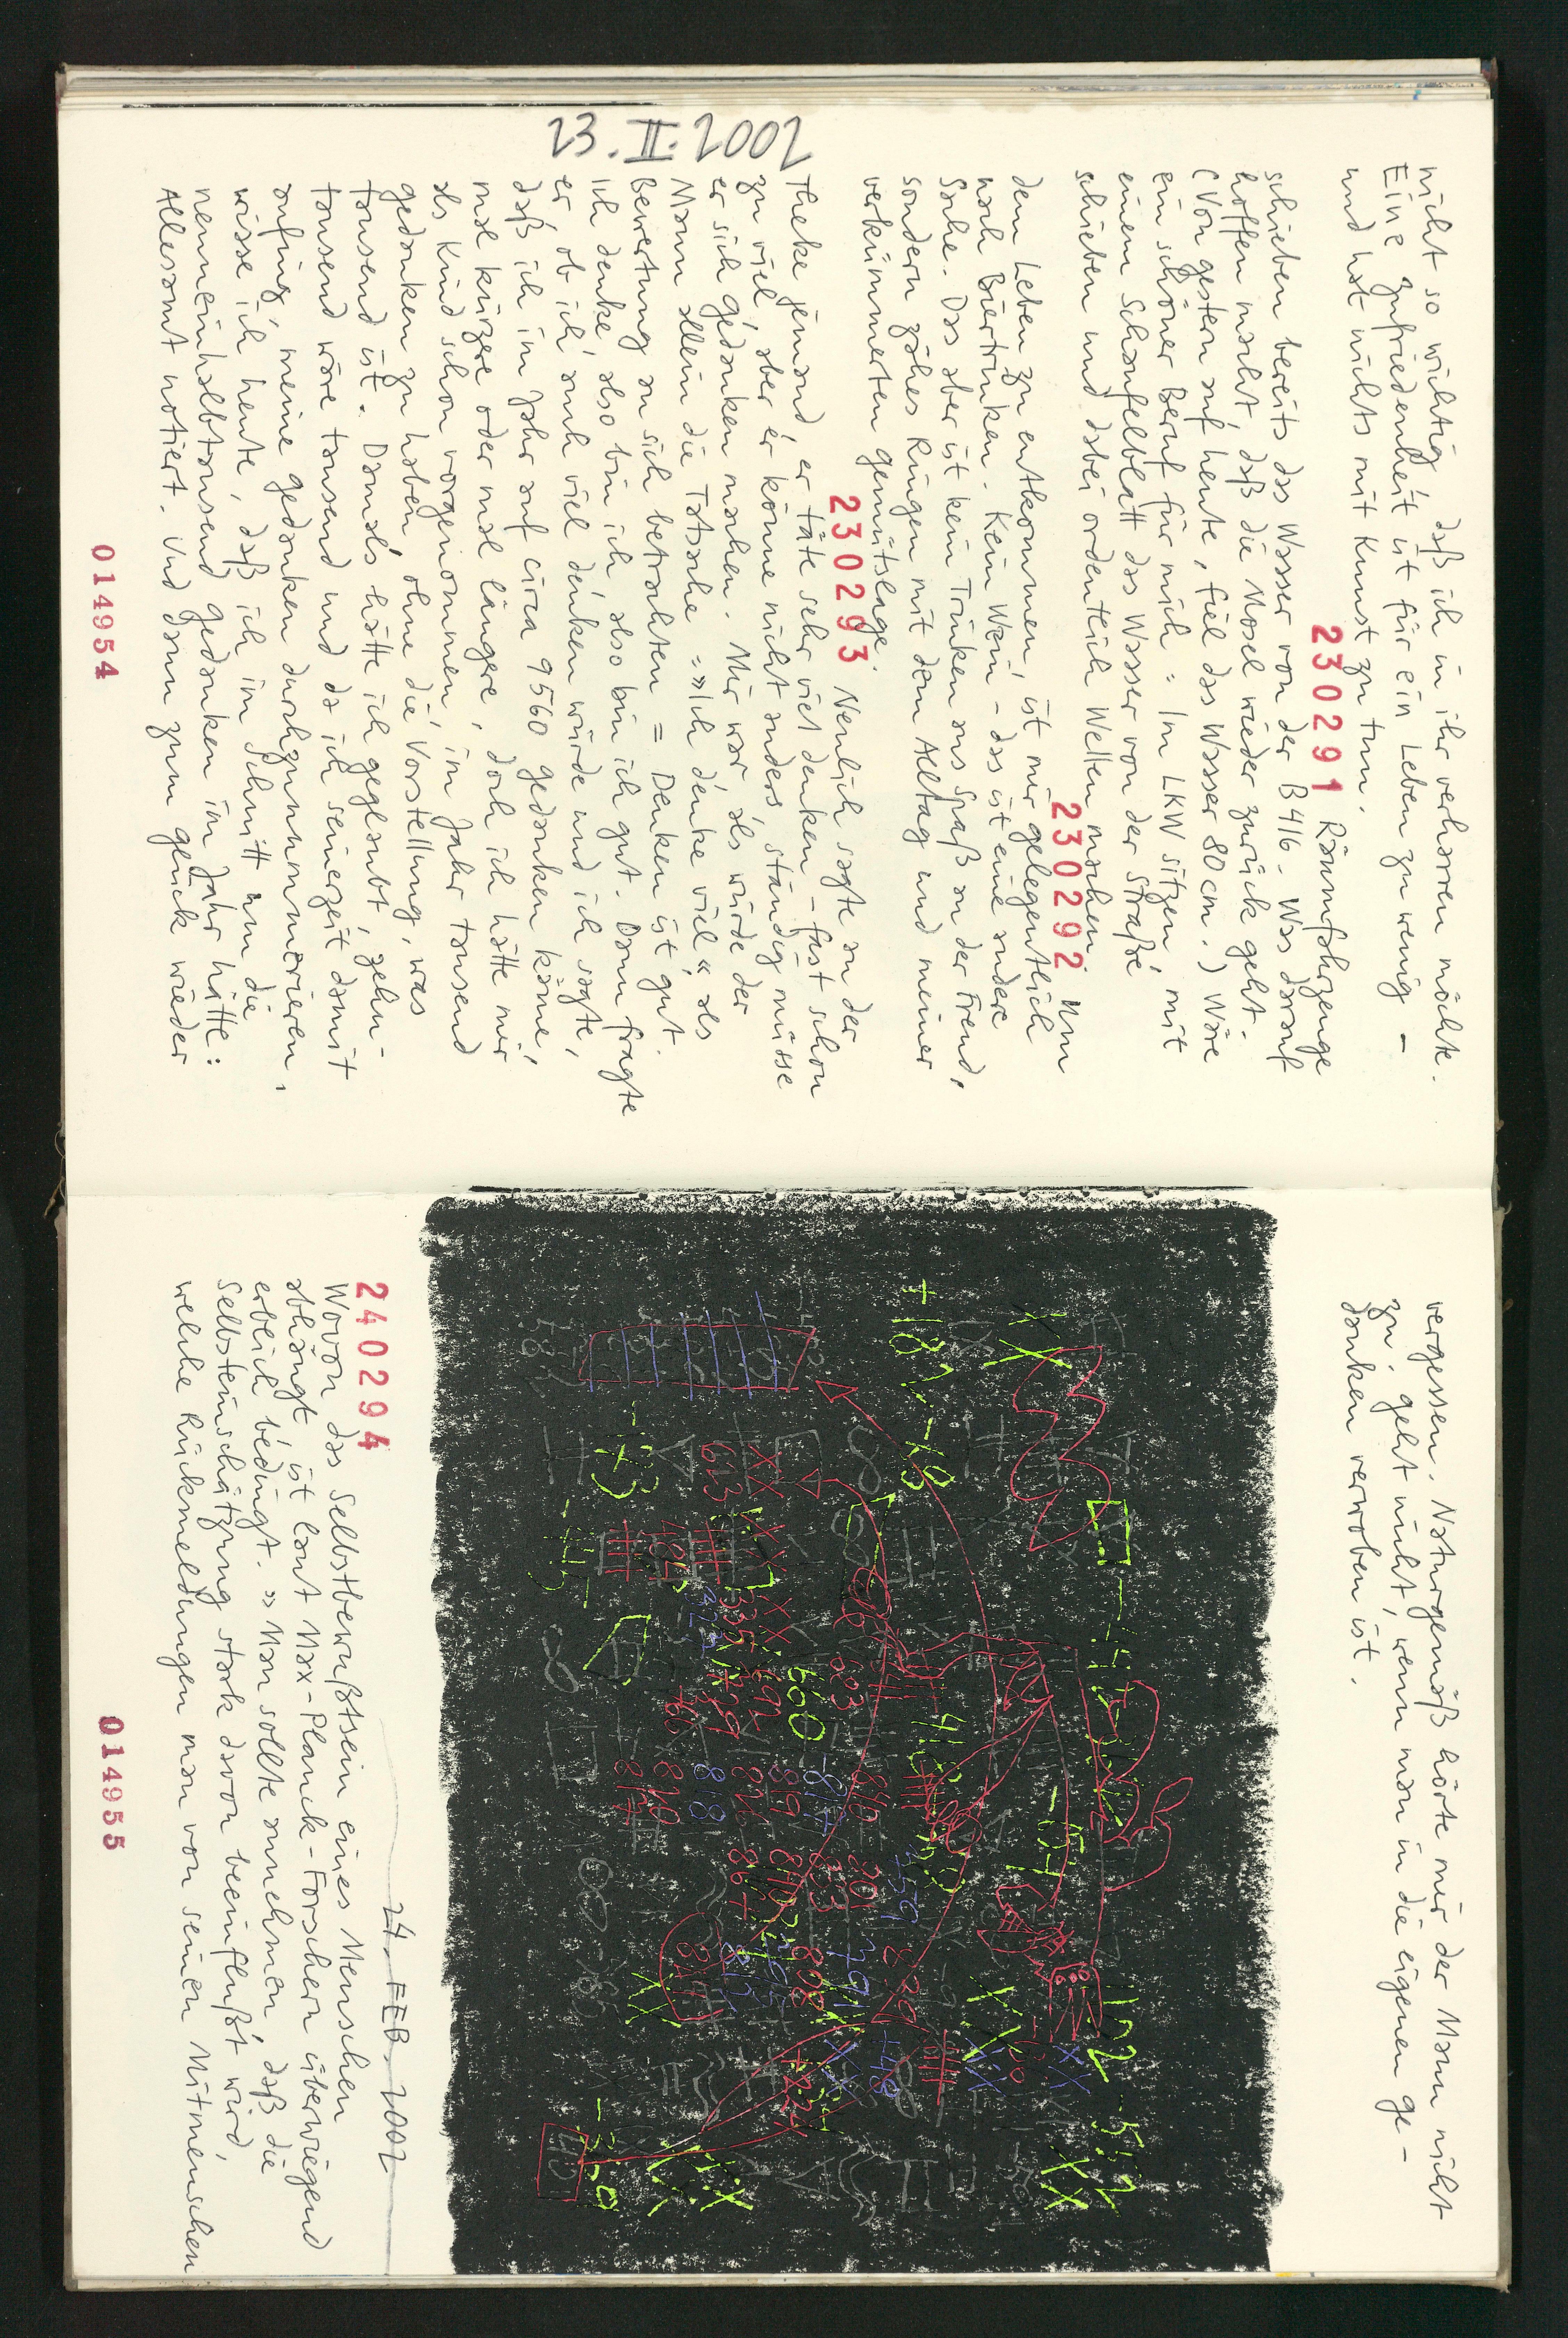 23. II. 2002
nicht so wichtig, daß ich in ihr verharren möchte.
Eine Zufriedenheit ist für ein Leben zu wenig –
und hat nichts mit Kunst zu tun.
230291 Räumfahrzeuge
schieben bereits das Wasser von der B416. Was darauf
hoffen macht, daß die Mosel wieder zurück geht.
(Von gestern auf heute, fiel das Wasser 80 cm.) Wäre
ein schöner Beruf für mich: Im LKW sitzen, mit
einem Schaufelblatt das Wasser von der Straße
schieben und dabei ordentlich Wellen machen.
230292 Um
dem Leben zu entkommen, ist mir gelegentlich
nach Biertrinken. Kein Wein – das ist eine andere
Sache. Das aber ist kein Trinken aus Spaß an der Freud,
sondern zähes Ringen mit dem Alltag und meiner
verkümmerten Gemütslage.
230293 Neulich sagte an der
Theke jemand, er täte sehr viel denken – fast schon
zu viel, aber er könne nicht anders, ständig müsse
er sich Gedanken machen. Mir war, als würde der
Mann allein die Tatsache »Ich denke viel« als
Bewertung an sich betrachten = Denken ist gut.
Ich denke, also bin ich, also bin ich gut. Dann fragte
er, ob ich auch viel denken würde und ich sagte,
daß ich im Jahr auf circa 9560 Gedanken käme,
mal kürzere oder mal längere, doch ich hätte mir
als Kind schon vorgenommen, im Jahr tausend
Gedanken zu haben, ohne die Vorstellung, was
tausend ist. Damals hätte ich geglaubt, zehn-
tausend wäre tausend und da ich seinerzeit damit
anfing, meine Gedanken durchzunummerieren,
wisse ich heute, daß ich im Schnitt um die
neuneinhalbtausend Gedanken im Jahr hätte:
Allesamt notiert. Und dann zum Glück wieder
014954
vergessen. Naturgemäß hörte mir der Mann nicht
zu, geht nicht, wenn man in die eigenen Ge-
danken verwoben ist.
24. FEB. 2002
240294
Wovon das Selbstbewußtsein eines Menschen
abhängt ist laut Max-Planck-Forschern überwiegend
erblich bedingt. »Man sollte annehmen, daß die
Selbsteinschätzung stark davon beeinflußt wird,
welche Rückmeldungen man von seinen Mitmenschen
014955